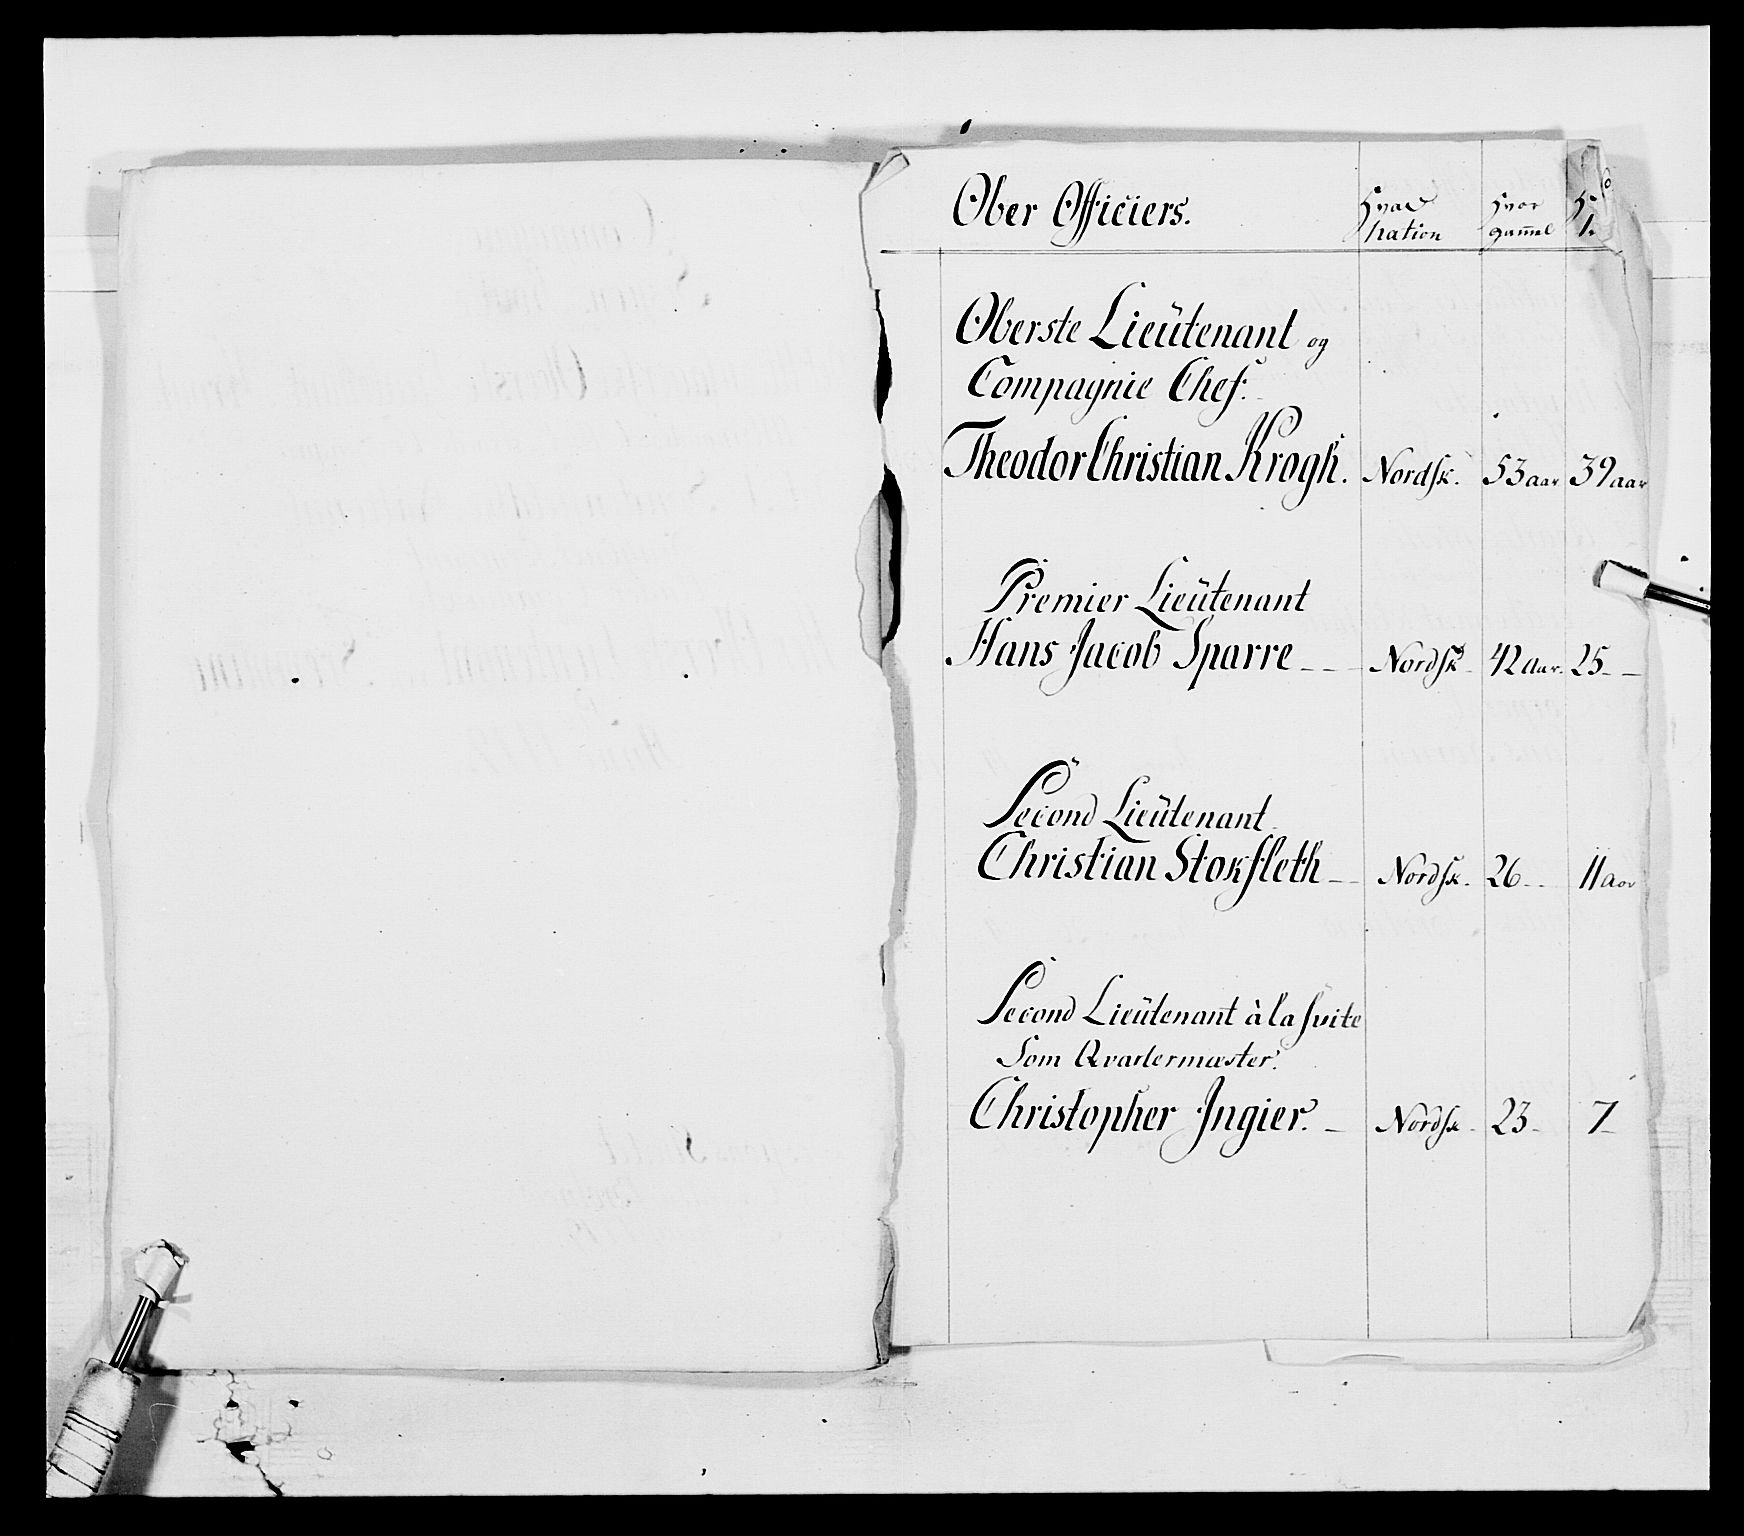 Ober Officiers. Hvad Hvor
Nation gam̄el
Oberste Lieütenant og
Compagnie Chef:
Theodor Christian Krogh. Nordsk. 53 aar 39 aar
Premier Lieütenant
Hans Jacob Sparre - - - Nordsk - 42 aar. 25 - -
Second Lieütenant
Christian Stokfleth - - Nordsk. 26 - - 11 aar
Second Lieütenant à la suite
Som Qvartermæster.
Christopher Jngier. - Nordsk - 23 - 7 -